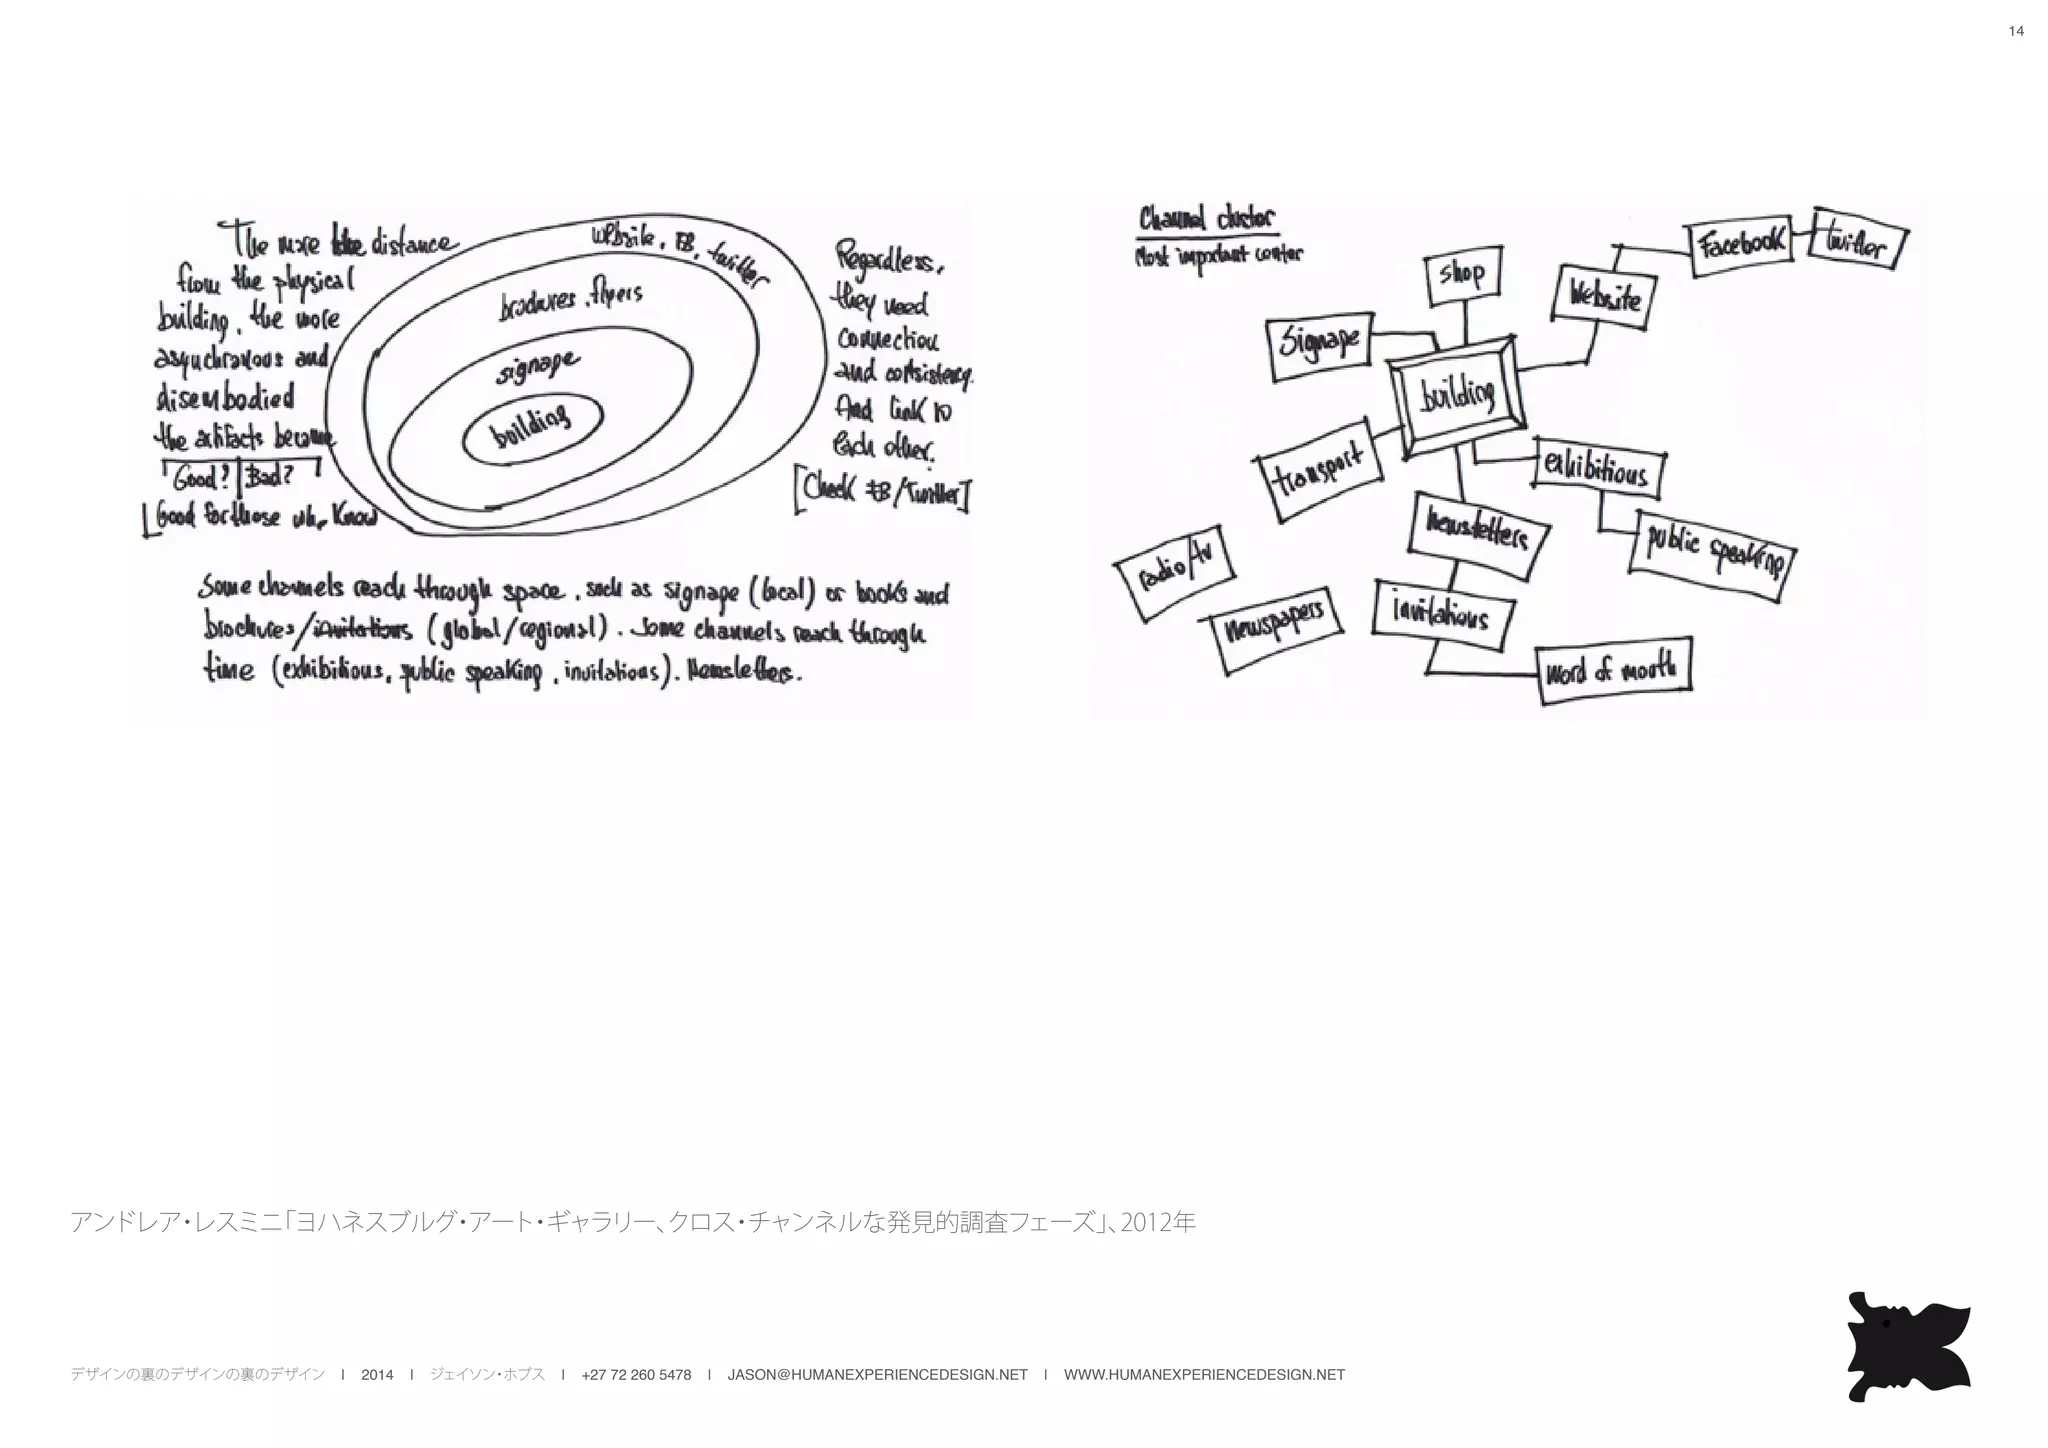 14
The more the distance
from the physical
building, the more
asynchronous and
disembodied
the artifacts become
Good? Bad?
[Good for those who know
website, FB, twitter
brochures, flyers
signage
building
Regardless,
they need
connection
and consistency.
And link to
each other.
[Check FB/Twitter]
Some channels reach through space, such as signage (local) or books and
brochures/invitations (global/regional). Some channels reach through
time (exhibitions, public speaking, invitations). Newsletters.
Channel cluster
Most important center
shop
Website
Facebook
twitter
Signage
building
transport
exhibitions
newsletters
public speaking
radio/tv
newspapers
invitations
word of mouth
アンドレア・レスミニ「ヨハネスブルグ・アート・ギャラリー、クロス・チャンネルな発見的調査フェーズ」、2012年
デザインの裏のデザインの裏のデザイン I 2014 I ジェイソン・ホブス I +27 72 260 5478 I JASON@HUMANEXPERIENCEDESIGN.NET I WWW.HUMANEXPERIENCEDESIGN.NET